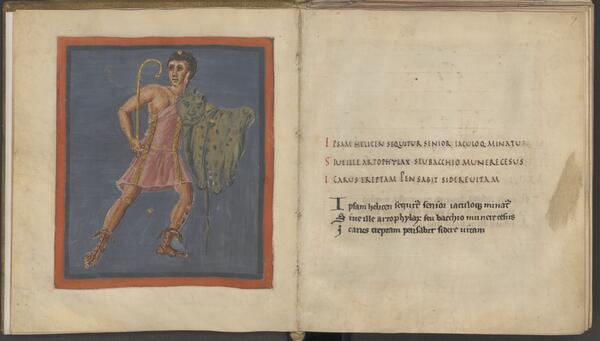 IPSAM HELICEN SEQUITUR SENIOR IACULOQ MINATUR
SIUEILLE ARTOPHYLAX SEUBACCHIO MUNERE CESUS
ICARUS EREPTAM PENSABIT SIDERE UITAM
Ipsam helicen sequit̄ senior iaculoqꝫ minat̄
Siue ille artophylax seu bacchio munere cesus
Icarus ereptam pensabit sidere uitam